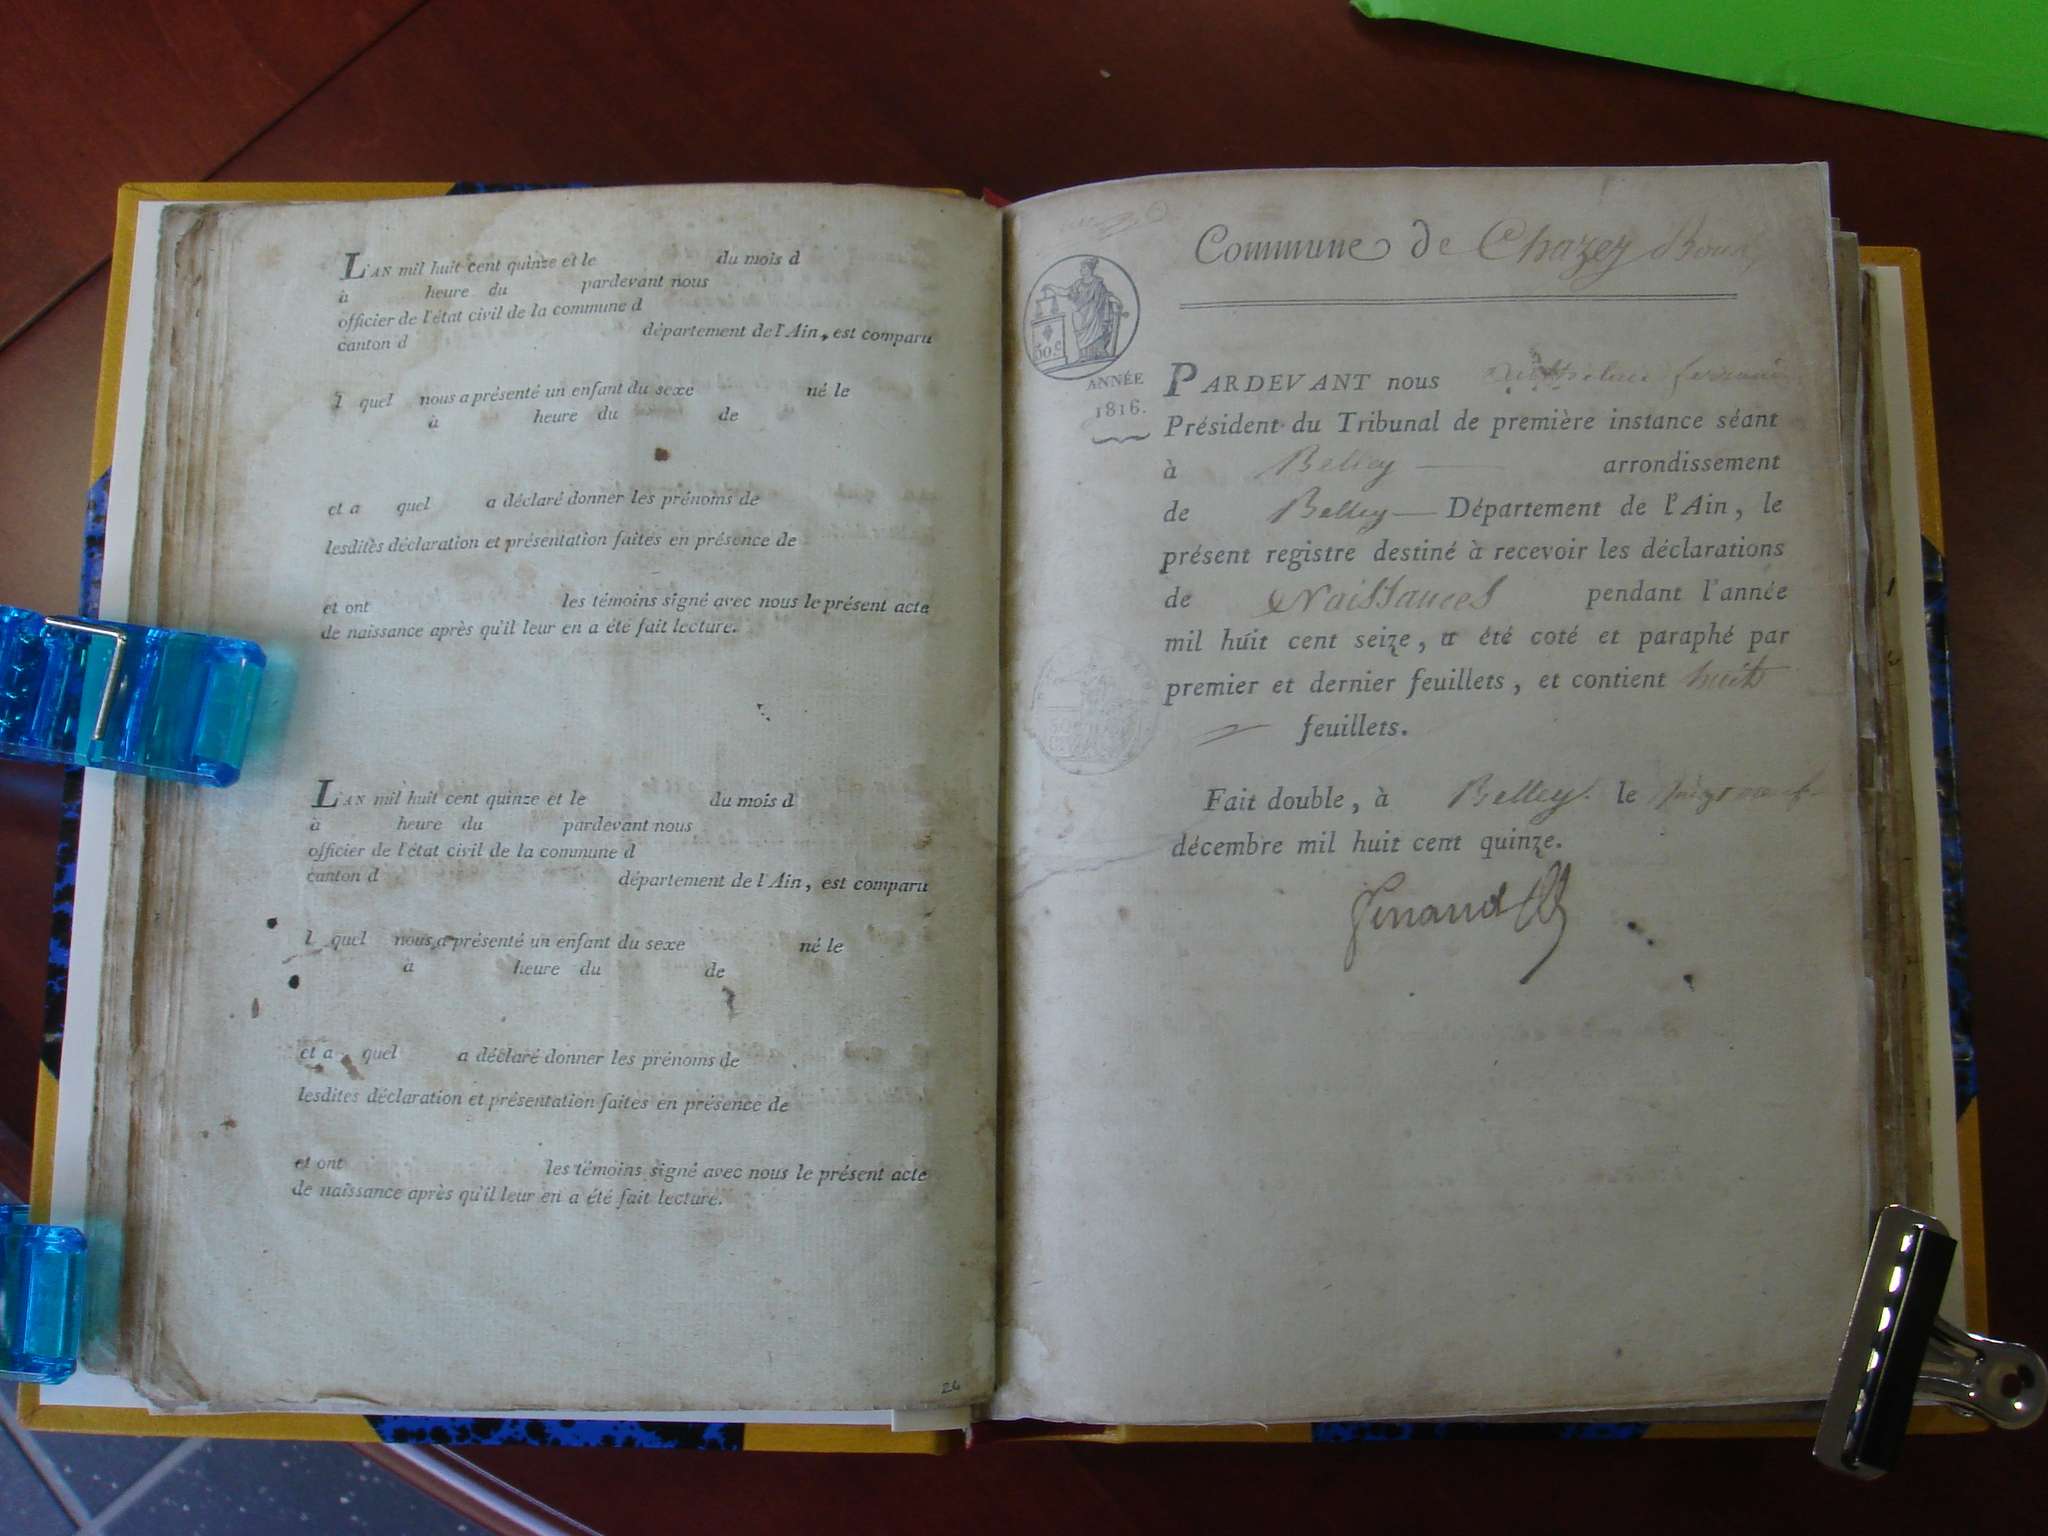 L'AN mil huit cent quinze et le du mois d
à heure du pardevant nous
officier de l'état civil de la commune d
canton d département de l'Ain, est comparu
l quel nous a présenté un enfant du sexe né le
à heure du de
et a quel a déclaré donner les prénoms de
lesdites déclaration et présentation faites en présence de
et ont les témoins signé avec nous le présent acte
de naissance après qu'il leur en a été fait lecture.
L'AN mil huit cent quinze et le du mois d
à heure du pardevant nous
officier de l'état civil de la commune d
canton d département de l'Ain, est comparu
l quel nous a présenté un enfant du sexe né le
à heure du de
et a quel a déclaré donner les prénoms de
lesdites déclaration et présentation faites en présence de
et ont les témoins signé avec nous le présent acte
de naissance après qu'il leur en a été fait lecture.
26
Commune de Chazey Bons
50 c
ANNÉE
1816.
PARDEVANT nous
Président du Tribunal de première instance séant
à Belley arrondissement
de Belley Département de l'Ain, le
présent registre destiné à recevoir les déclarations
de Naissances pendant l'année
mil huit cent seize, a été coté et paraphé par
premier et dernier feuillets, et contient huit
feuillets.
Fait double, à Belley le vingt neuf
décembre mil huit cent quinze.